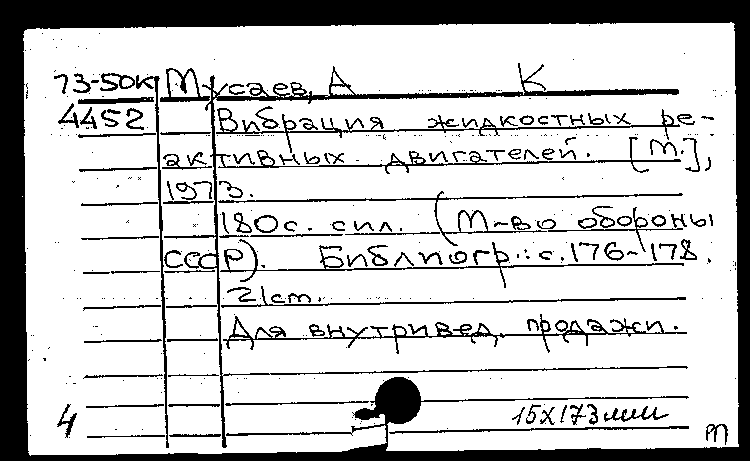 73-50к Мусаев, А К
4452 Вибрация жидкостных ре-
активных двигателей. [М.],
1973.
180с. с ил. (М-во обороны
СССР). Библиогр.: с.176-178.
21см.
Для внутривед. продажи.
4 15х173мм
m